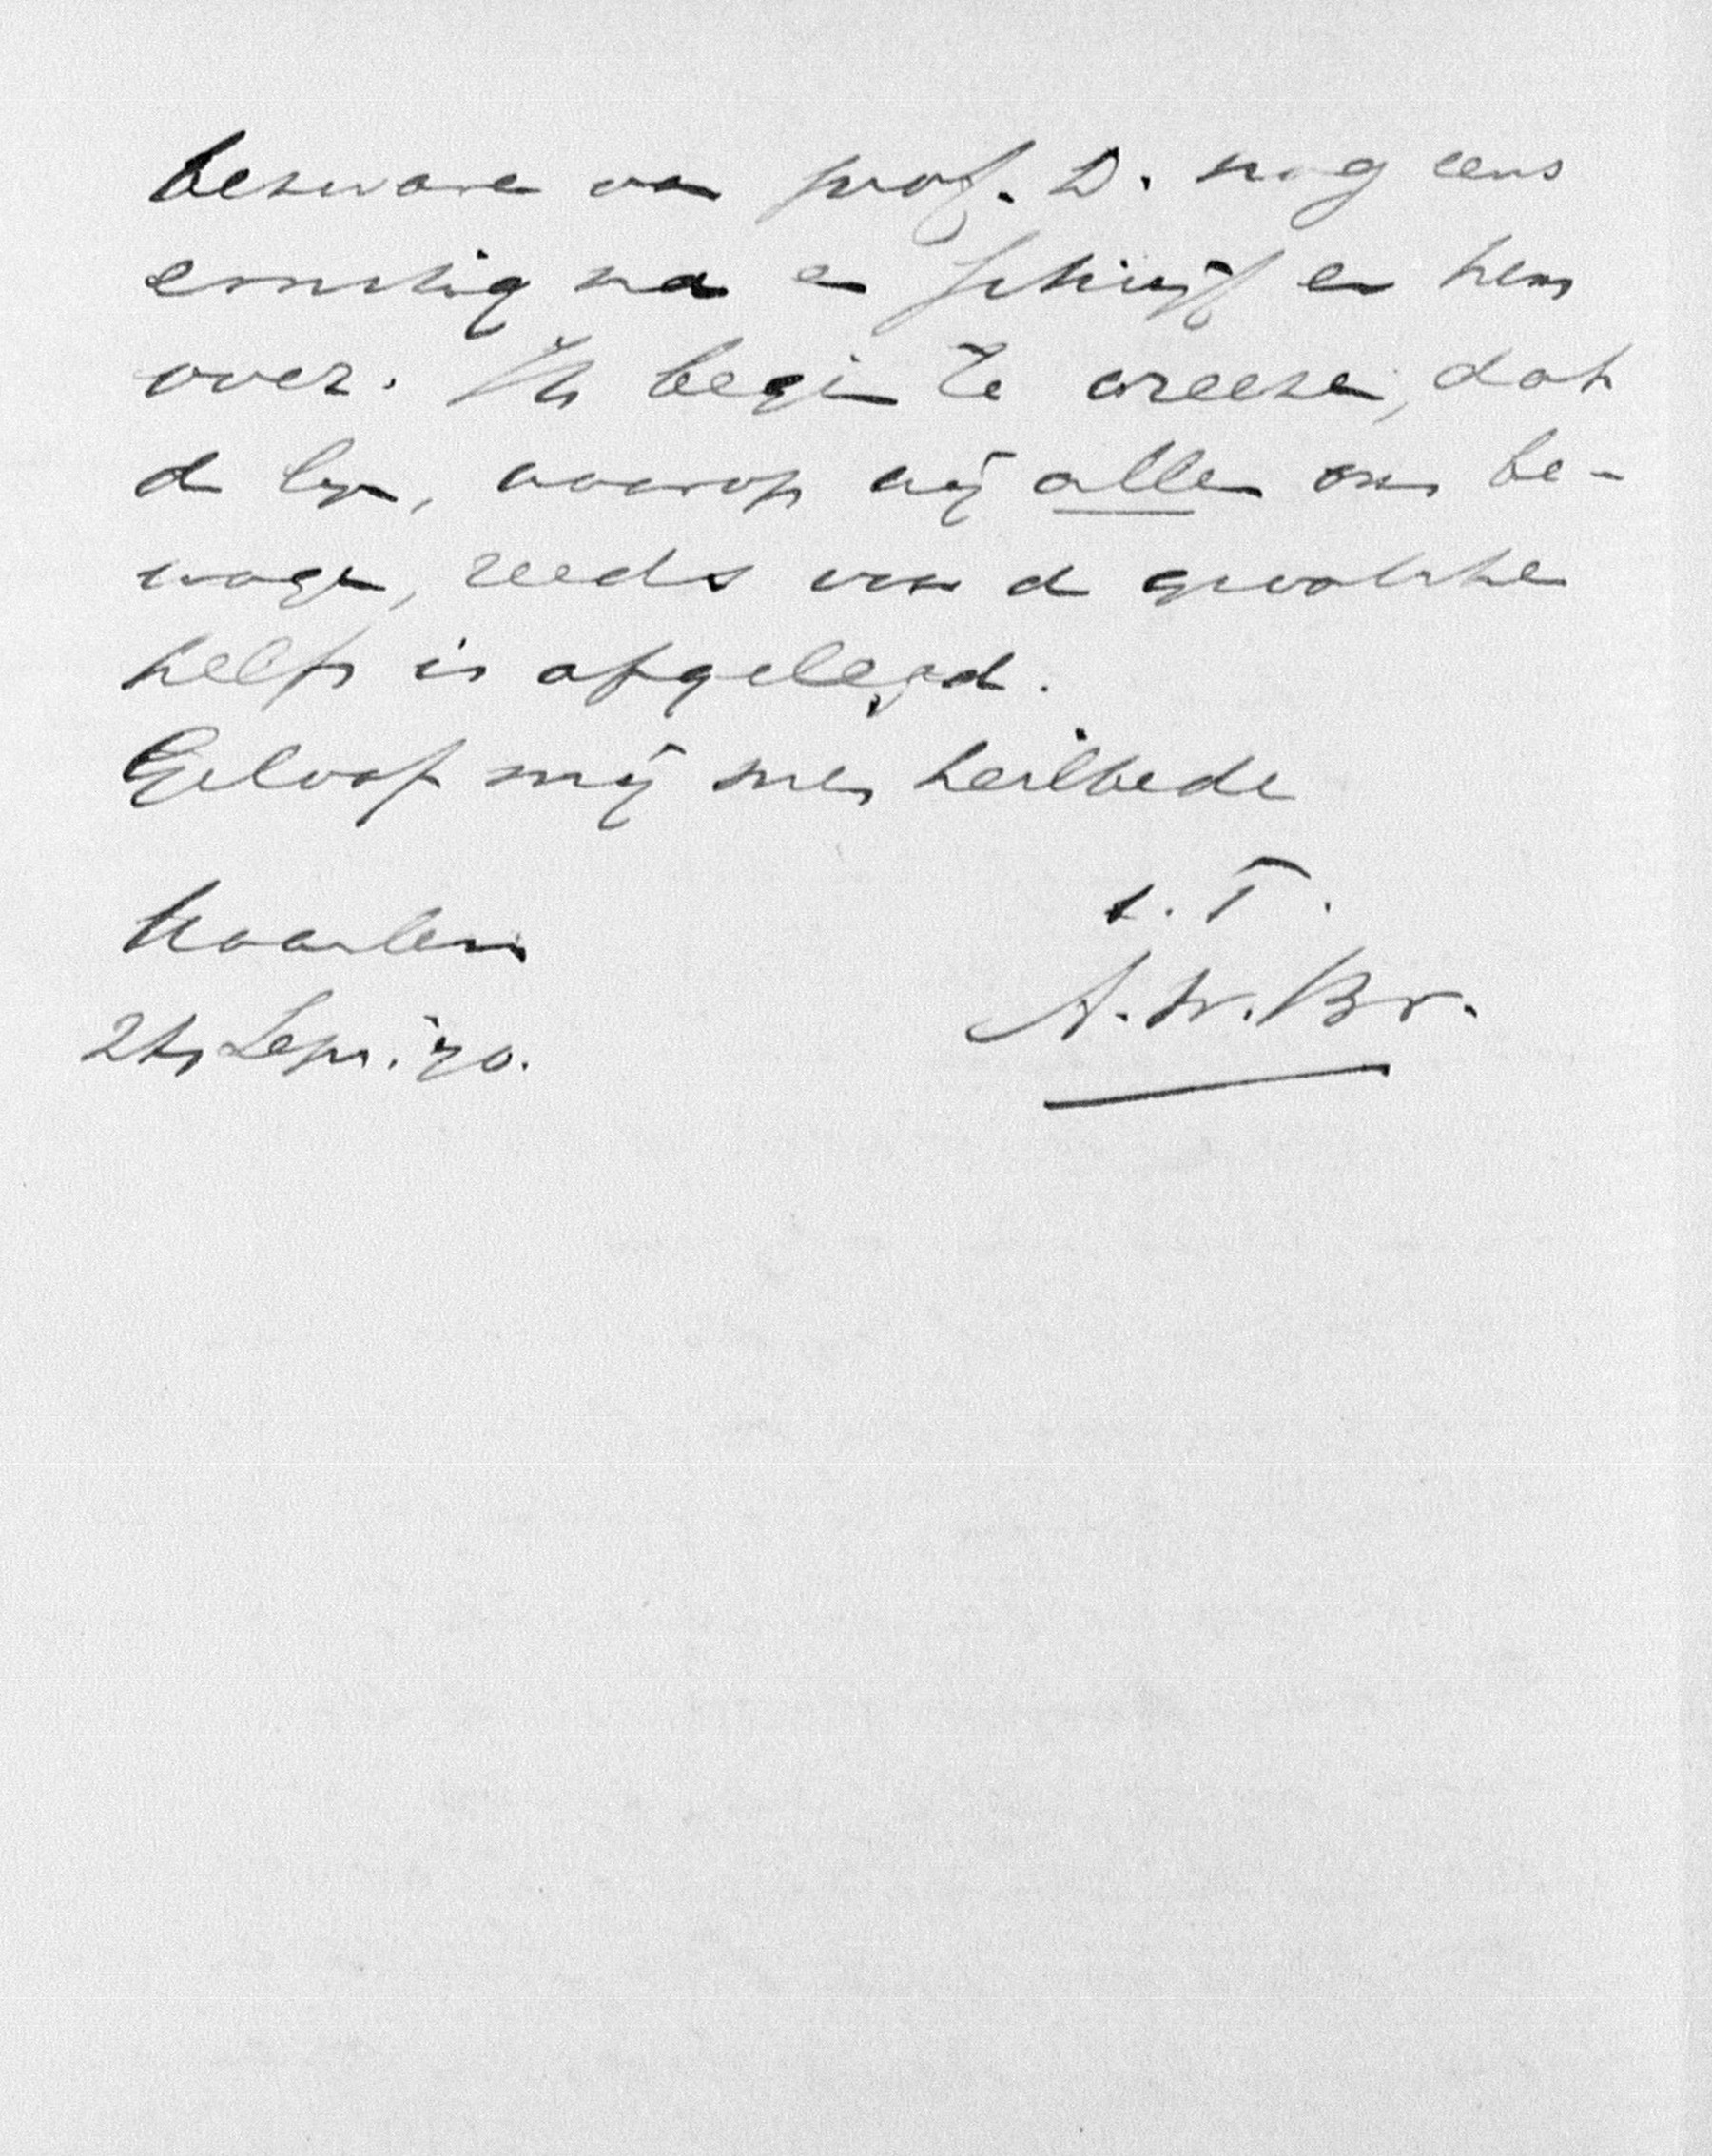 bezwaren van prof. D. nog eens
ernstig na en schrijf er hem
over. Ik begin te vreezen, dat
de lijn, waarop wij allen ons be-
wegen, reeds voor de grootste
helft is afgelegd.
Geloof mij met heilbede
t. T.
Haarlem
A. W. Br.
24 Sept. '20.